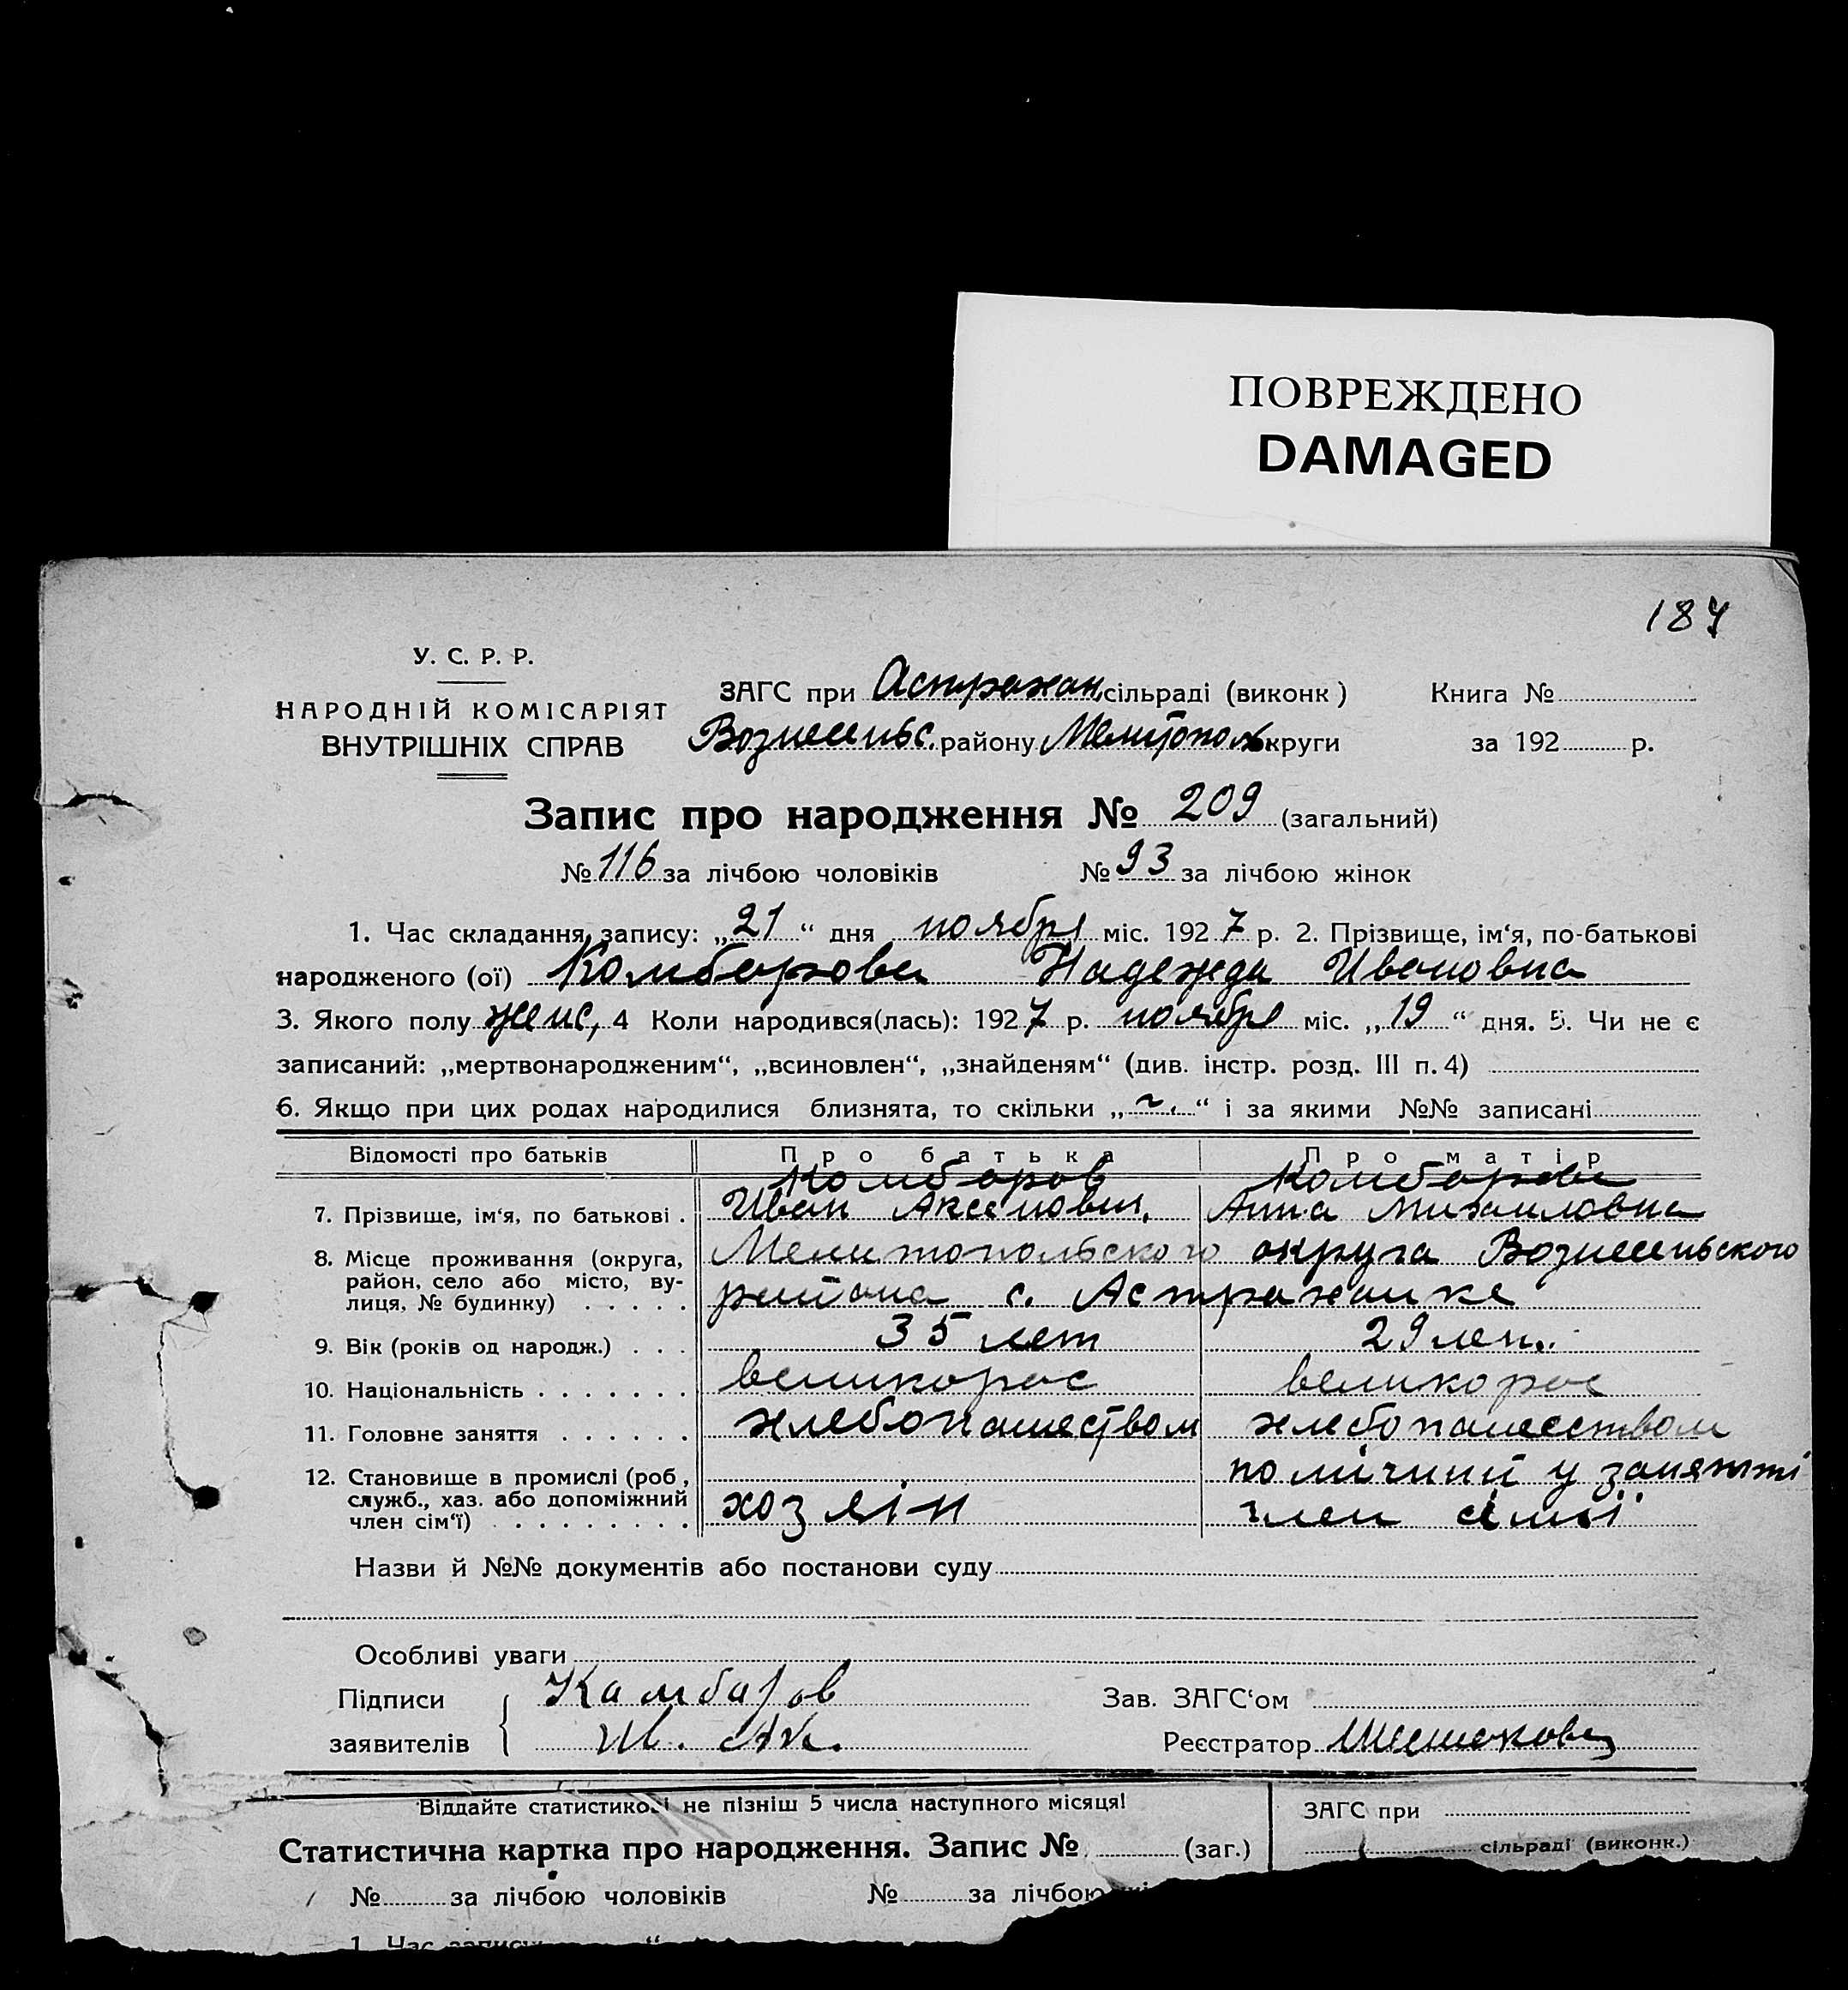 ПОВРЕЖДЕНО
DAMAGED
187
У. С. Р. Р.
НАРОДНІЙ КОМІСАРІЯТ
ВНУТРІШНІХ СПРАВ
ЗАГС при Астрахан. сільраді (виконк) Книга №
Вознесеньс. району Мелитополь округи за 192 р.
Запис про народження № 209 (загальний)
№ 116 за лічбою чоловіків № 93 за лічбою жінок
1. Час складання запису: „21“ дня ноября міс. 1927 р. 2. Прізвище, ім‘я, по-батькові
народженого (ої) Комбарова Надежда Ивановна
3. Якого полу женс, 4 Коли народився(лась): 1927 р. ноября міс. „19“ дня. 5. Чи не є
записаний: „мертвонародженим“, „всиновлен“, „знайденям“ (див. інстр. розд. III п. 4)
6. Якщо при цих родах народилися близнята, то скільки „~.“ і за якими №№ записані
Відомості про батьків Про батька Про матір
Комбаров Комбарова
7. Прізвище, ім‘я, по батькові . Иван Аксенович. Анна Михаиловна
8. Місце проживання (округа, Мелитопольского округа Вознесеньского
район, село або місто, ву-
лиця, № будинку) . . . . . района с. Астраханке
9. Вік (років од народж.) . . . 35 лет 29 лет.
10. Національність . . . . . . . великорос великорос
11. Головне заняття . . . . . . хлебопашеством хлебопашеством
12. Становище в промислі (роб, помічний у занятті
служб., хаз. або допоміжний хозяін член сімьї
член сім‘ї) . . . . . . . . .
Назви й №№ документів або постанови суду
Особливі уваги
Підписи Камбаров Зав. ЗАГС‘ом
заявителів Ив. Ак. Реєстратор
Віддайте статистикові не пізніш 5 числа наступного місяця! ЗАГС при
Статистична картка про народження. Запис № (заг.) сільраді (виконк.)
№ за лічбою чоловіків № за лічбою
1. Час запису